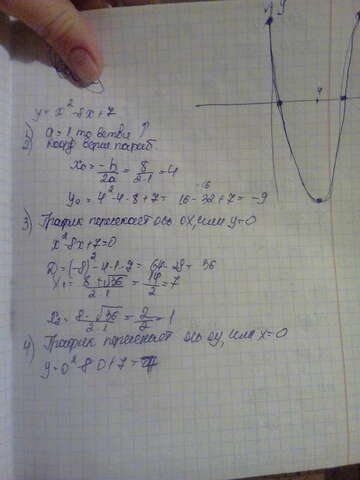 y
4
y = x² - 8x + 7
1) a = 1 то ветви ↑
2) коор верш параб.
x₀ = -b/2a = 8/2·1 = 4
-16
y₀ = 4² - 4·8 + 7 = 16 - 32 + 7 = -9
3) График пересекает ось OX, или y=0
x² 8x + 7 = 0
D = (-8)² - 4·1·7 = 64 - 28 = 36
x₁ = 8 + √36 / 2·1 = 14/2 = 7
x₂ = 8 - √36 / 2·1 = 2/2 = 1
4) График пересекает ось oy, или x=0
y = 0² - 8·0 + 7 =